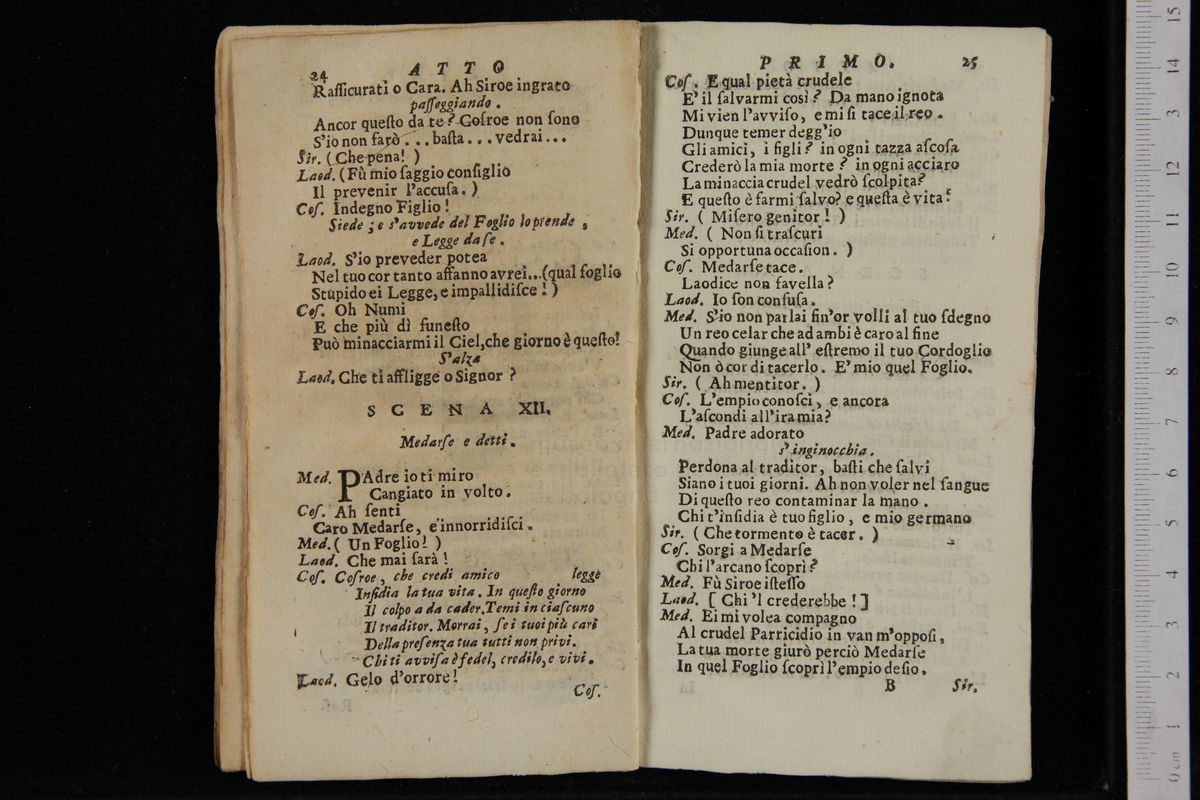 24 ATTO
Rafſicurati o Cara. Ah Siroe ingrato
paſſeggiando.
Ancor queſto da te? Coſroe non ſono
S'io non farò... baſta... vedrai...
Sir. (Che pena! )
Laod. (Fù mio ſaggio conſiglio
Il prevenir l'accuſa.)
Coſ. Indegno Figlio!
Siede; e s'avvede del Foglio lo prende,
e Legge da ſe.
Laod. S'io preveder potea
Nel tuo cor tanto affanno avrei...(qual foglio
Stupido ei Legge, e impallidiſce!)
Coſ. Oh Numi
E che più dì funeſto
Può minacciarmi il Ciel, che giorno è queſto!
S'alza
Laod. Che ti affligge o Signor?
SCENA XII.
Medarſe e detti.
Med. PAdre io ti miro
Cangiato in volto.
Coſ. Ah ſenti
Caro Medarſe, e innorridiſci.
Med. ( Un Foglio! )
Laod. Che mai ſarà!
Coſ. Coſroe, che credi amico legge
Inſidia la tua vita. In queſto giorno
Il colpo a da cader. Temi in ciaſcuno
Il traditor. Morrai, ſe i tuoi più cari
Della preſenza tua tutti non privi.
Chi ti avviſa è fedel, credilo, e vivi.
Laod. Gelo d'orrore!
Coſ.
PRIMO. 25
Coſ. E qual pietà crudele
E' il ſalvarmi così? Da mano ignota
Mi vien l'avviſo, e mi ſi tace il reo.
Dunque temer degg'io
Gli amici, i figli? in ogni tazza aſcoſa
Crederò la mia morte? in ogni acciaro
La minaccia crudel vedrò ſcolpita?
E queſto è farmi ſalvo? e queſta è vita?
Sir. ( Miſero genitor! )
Med. ( Non ſi traſcuri
Si opportuna occaſion. )
Coſ. Medarſe tace.
Laodice non favella?
Laod. Io ſon confuſa.
Med. S'io non parlai ſin'or volli al tuo ſdegno
Un reo celar che ad ambi è caro al fine
Quando giunge all' eſtremo il tuo Cordoglio
Non ò cor di tacerlo. E' mio quel Foglio.
Sir. ( Ah mentitor. )
Coſ. L'empio conoſci, e ancora
L'aſcondi all'ira mia?
Med. Padre adorato
s'inginocchia.
Perdona al traditor, baſti che ſalvi
Siano i tuoi giorni. Ah non voler nel ſangue
Di queſto reo contaminar la mano.
Chi t'inſidia è tuo figlio, e mio germano
Sir. ( Che tormento è tacer. )
Coſ. Sorgi a Medarſe
Chi l'arcano ſcoprì?
Med. Fù Siroe iſteſſo
Laod. [ Chi 'l crederebbe! ]
Med. Ei mi volea compagno
Al crudel Parricidio in van m'oppoſi,
La tua morte giurò perciò Medarſe
In quel Foglio ſcoprì l'empio deſio.
B Sir.